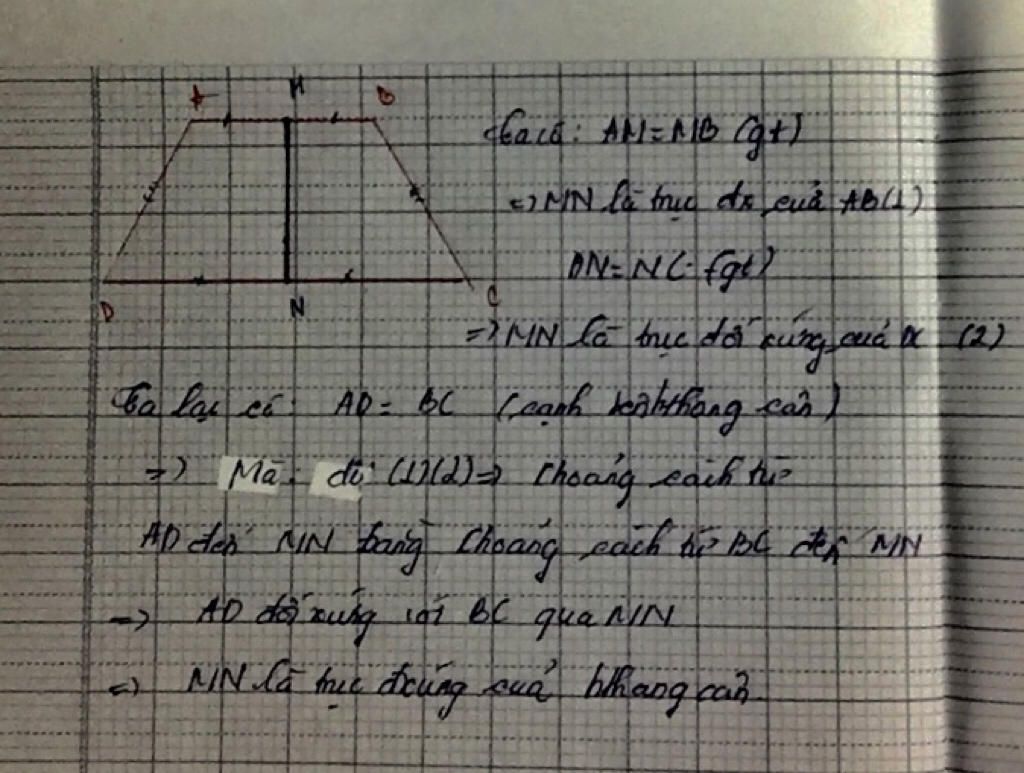 A M B
Ta có: AM = MB (gt)
=> MN là trục đx của AB (1)
DN = NC (gt)
D N C
=> MN là trục đối xứng của DC (2)
Ta lại có: AD = BC (cạnh bên hthang cân)
=> Mà: từ (1)(2) => khoảng cách từ
AD đến MN bằng khoảng cách từ BC đến MN
=> AD đối xứng với BC qua MN
=> MN là trục đxứng của hthang cân